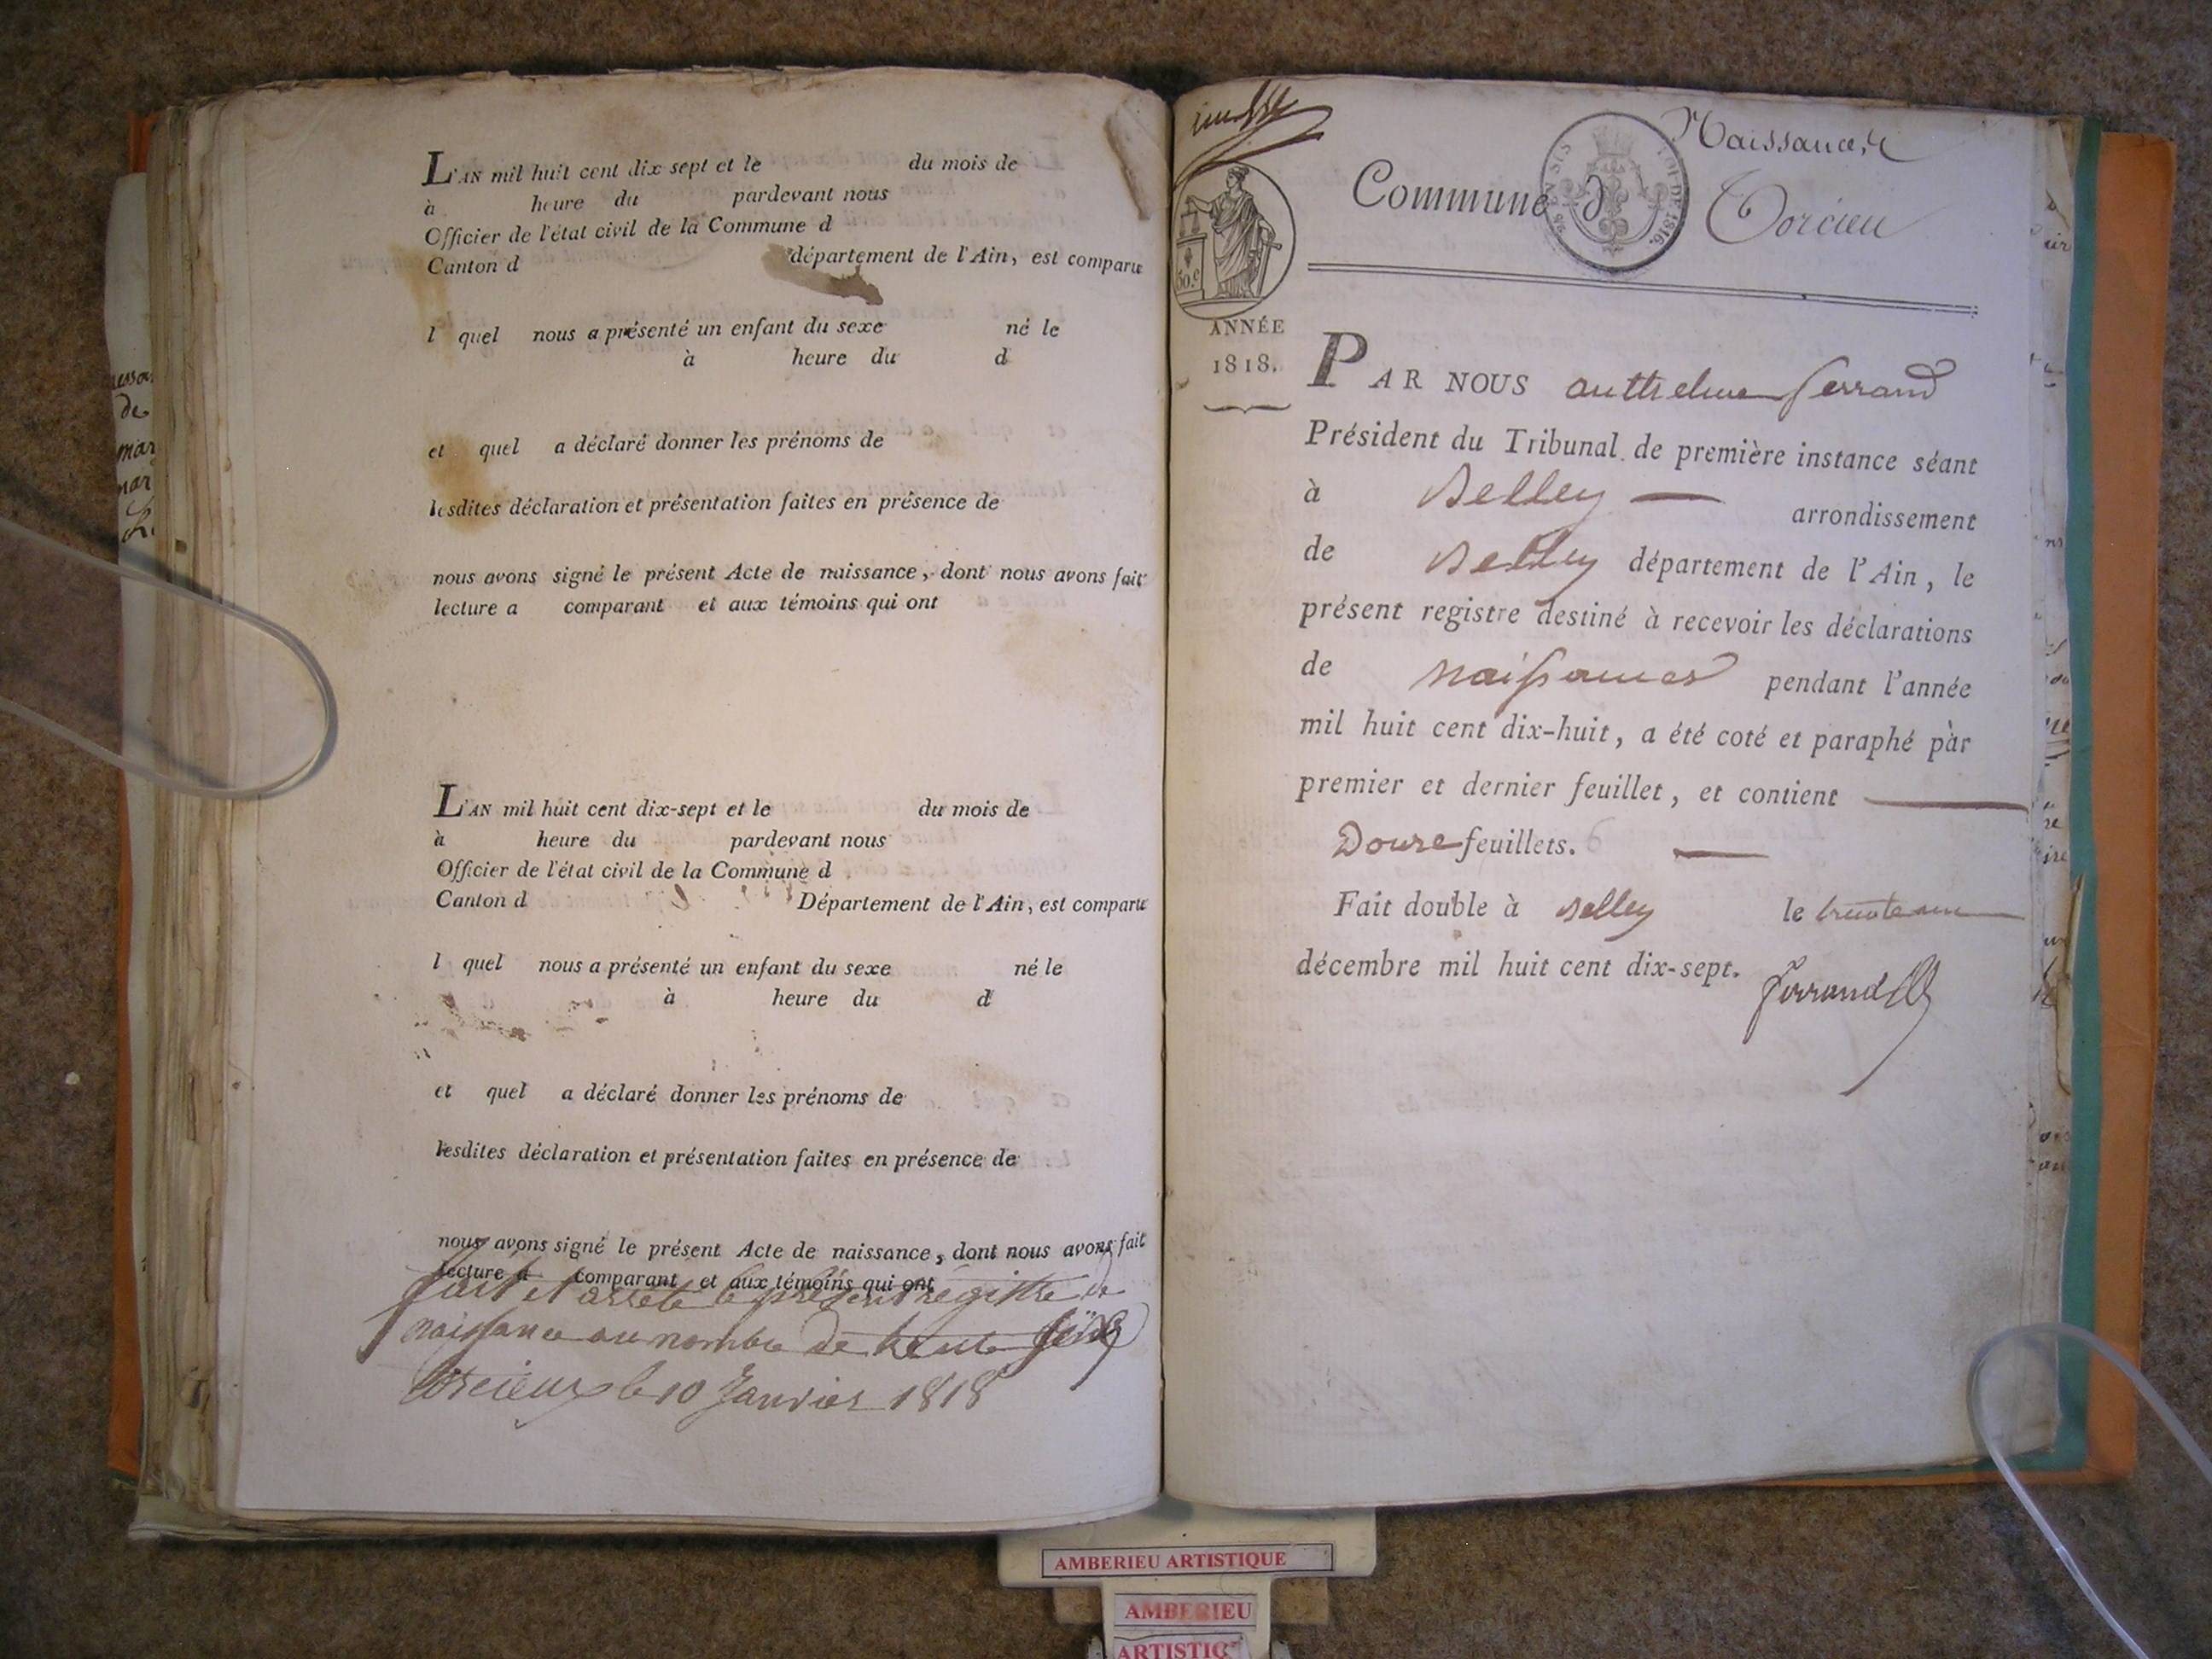 L'AN mil huit cent dix sept et le du mois de
à heure du pardevant nous
Officier de l'état civil de la Commune d
Canton d département de l'Ain, est comparu
l quel nous a présenté un enfant du sexe né le
à heure du d
et quel a déclaré donner les prénoms de
lesdites déclaration et présentation faites en présence de
nous avons signé le présent Acte de naissance, dont nous avons fait
lecture a comparant et aux témoins qui ont
L'AN mil huit cent dix-sept et le du mois de
à heure du pardevant nous
Officier de l'état civil de la Commune d
Canton d Département de l'Ain, est comparu
l quel nous a présenté un enfant du sexe né le
à heure du d
et quel a déclaré donner les prénoms de
lesdites déclaration et présentation faites en présence de
nous avons signé le présent Acte de naissance, dont nous avons fait
lecture a comparant et aux témoins qui ont
fait et arrété le présent régistre de
naissance au nombre de trente
torcieux le 10 Janvier 1818
Naissances
Commune de Torcieu
50.c
ANNÉE
1818.
PAR NOUS anthelme ferrand
Président du Tribunal de première instance séant
à Belley arrondissement
de Belley département de l'Ain, le
présent registre destiné à recevoir les déclarations
de naissances pendant l'année
mil huit cent dix-huit, a été coté et paraphé par
premier et dernier feuillet, et contient
Douze feuillets. 6
Fait double à Belley le trente un
décembre mil huit cent dix-sept.
ferrand
AMBERIEU ARTISTIQUE
AMBERIEU
ARTISTIQ